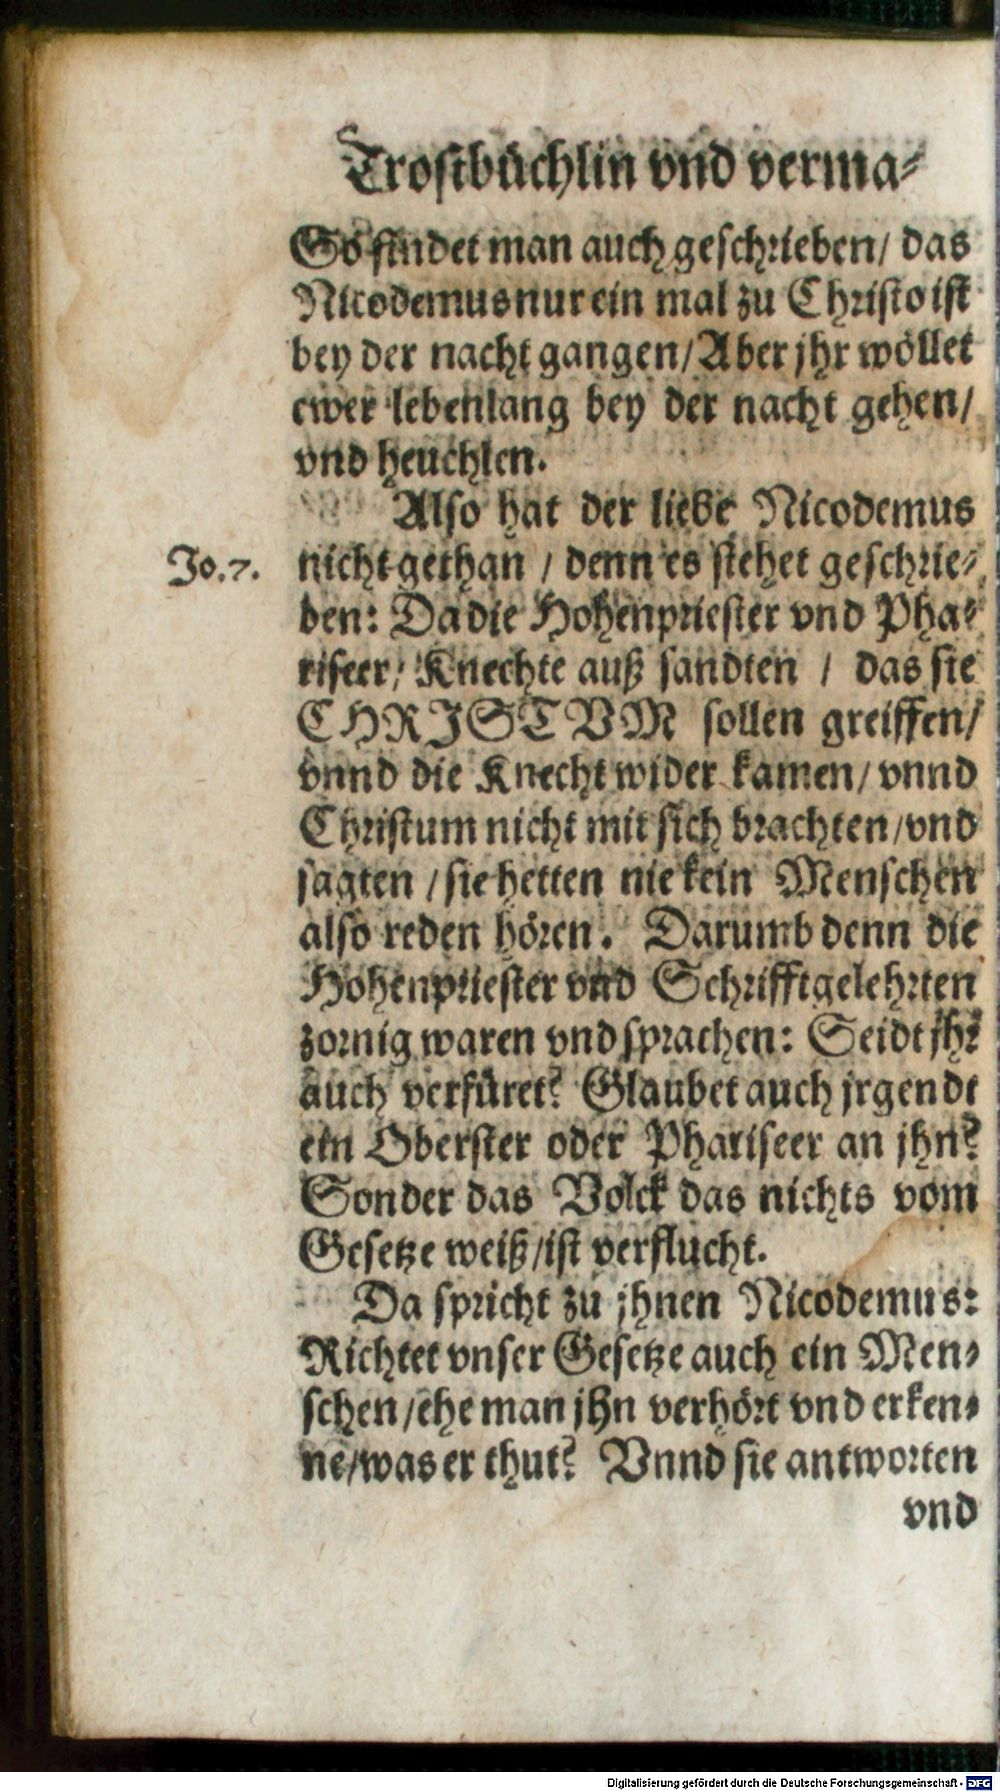 Trostbüchlin vnd verma⸗
So findet man auch geschrieben/ das
Nicodemus nur ein mal zu Christo ist
bey der nacht gangen/ Aber jhr wöllet
ewer lebenlang bey der nacht gehen/
vnd heuchlen.
Also hat der liebe Nicodemus
Jo. 7. nicht gethan / denn es stehet geschrie⸗
ben: Da die Hohenpriester vnd Pha⸗
riseer/ Knechte auß sandten / das sie
CHRISTVM sollen greiffen/
vnnd die Knecht wider kamen/ vnnd
Christum nicht mit sich brachten/ vnd
sagten / sie hetten nie kein Menschen
also reden hören. Darumb denn die
Hohenpriester vnd Schrifftgelehrten
zornig waren vnd sprachen: Seidt jhr
auch verfüret? Glaubet auch jrgendt
ein Oberster oder Phariseer an jhn?
Sonder das Volck das nichts vom
Gesetze weiß/ ist verflucht.
Da spricht zu jhnen Nicodemus:
Richtet vnser Gesetze auch ein Men⸗
schen/ ehe man jhn verhört vnd erken⸗
ne/ was er thut? Vnnd sie antworten
vnd
Digitalisierung gefördert durch die Deutsche Forschungsgemeinschaft - DFG